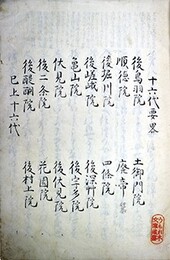 十六代要畧
後鳥羽院
土御門院
順徳院
廃帝
後堀川院
四條院
後嵯峨院
後深草院
亀山院
後宇多院
伏見院
後伏見院
後二条院
花園院
後醍醐院
後村上院
已上十六代